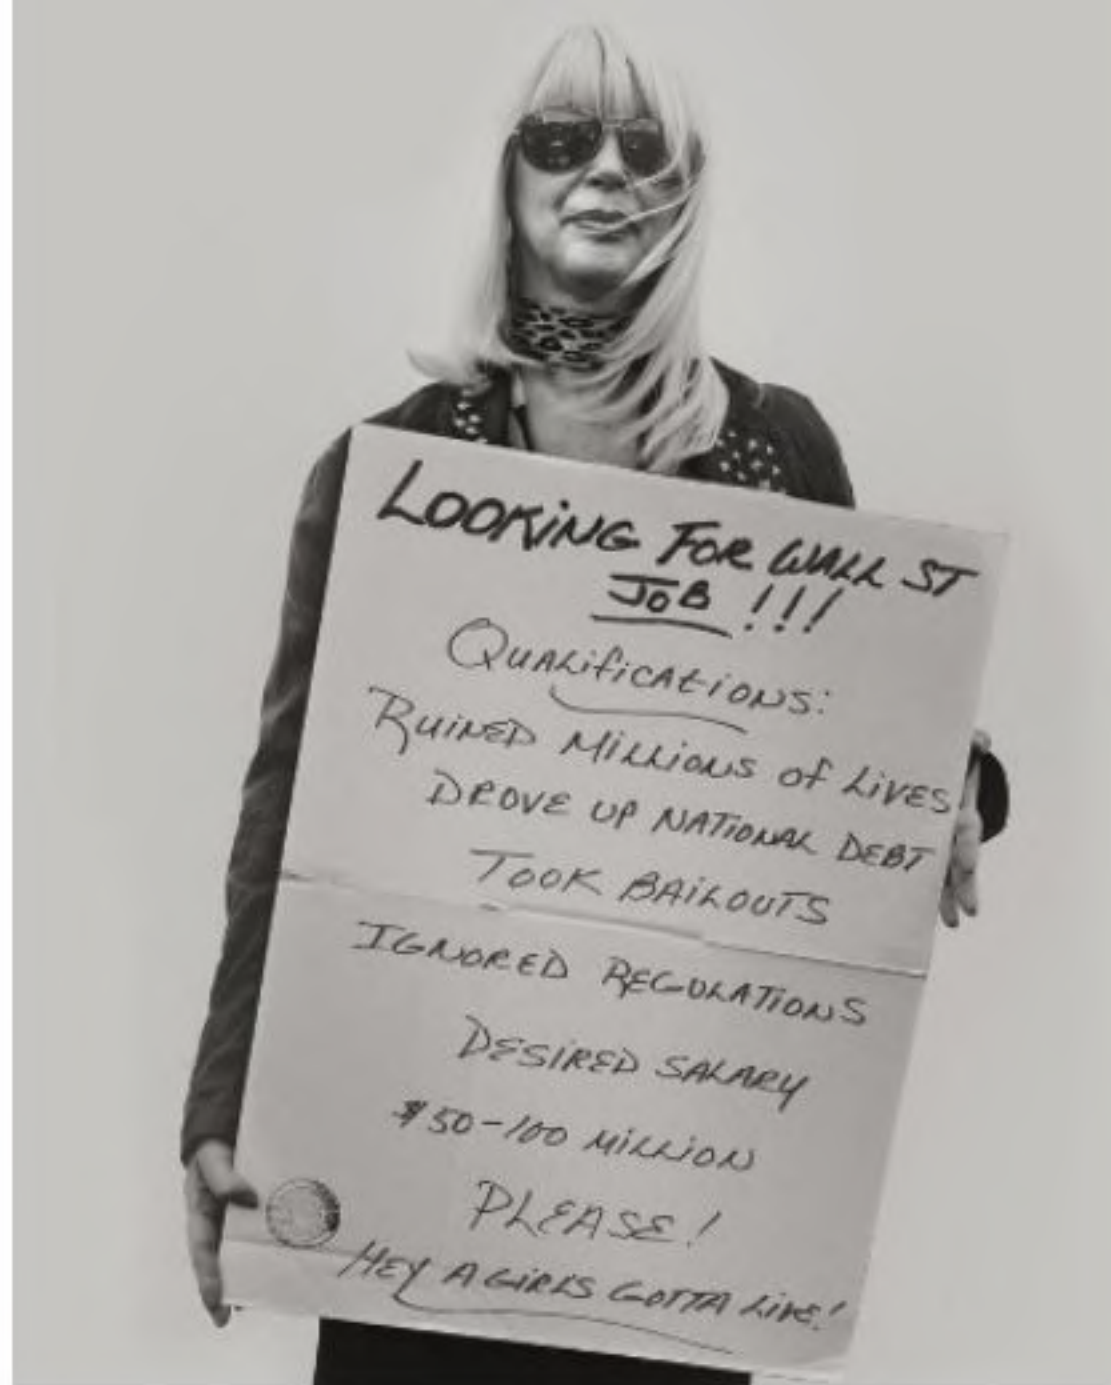 LOOKING FOR WALL ST
JOB !!!
QUALIFICATIONS:
RUINED MILLIONS of LIVES
DROVE UP NATIONAL DEBT
TOOK BAILOUTS
IGNORED REGULATIONS
DESIRED SALARY
$50-100 MILLION
PLEASE!
HEY A GIRLS GOTTA LIVE!